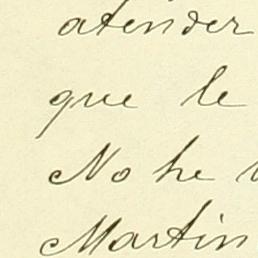 atender
que le
No he
Martin